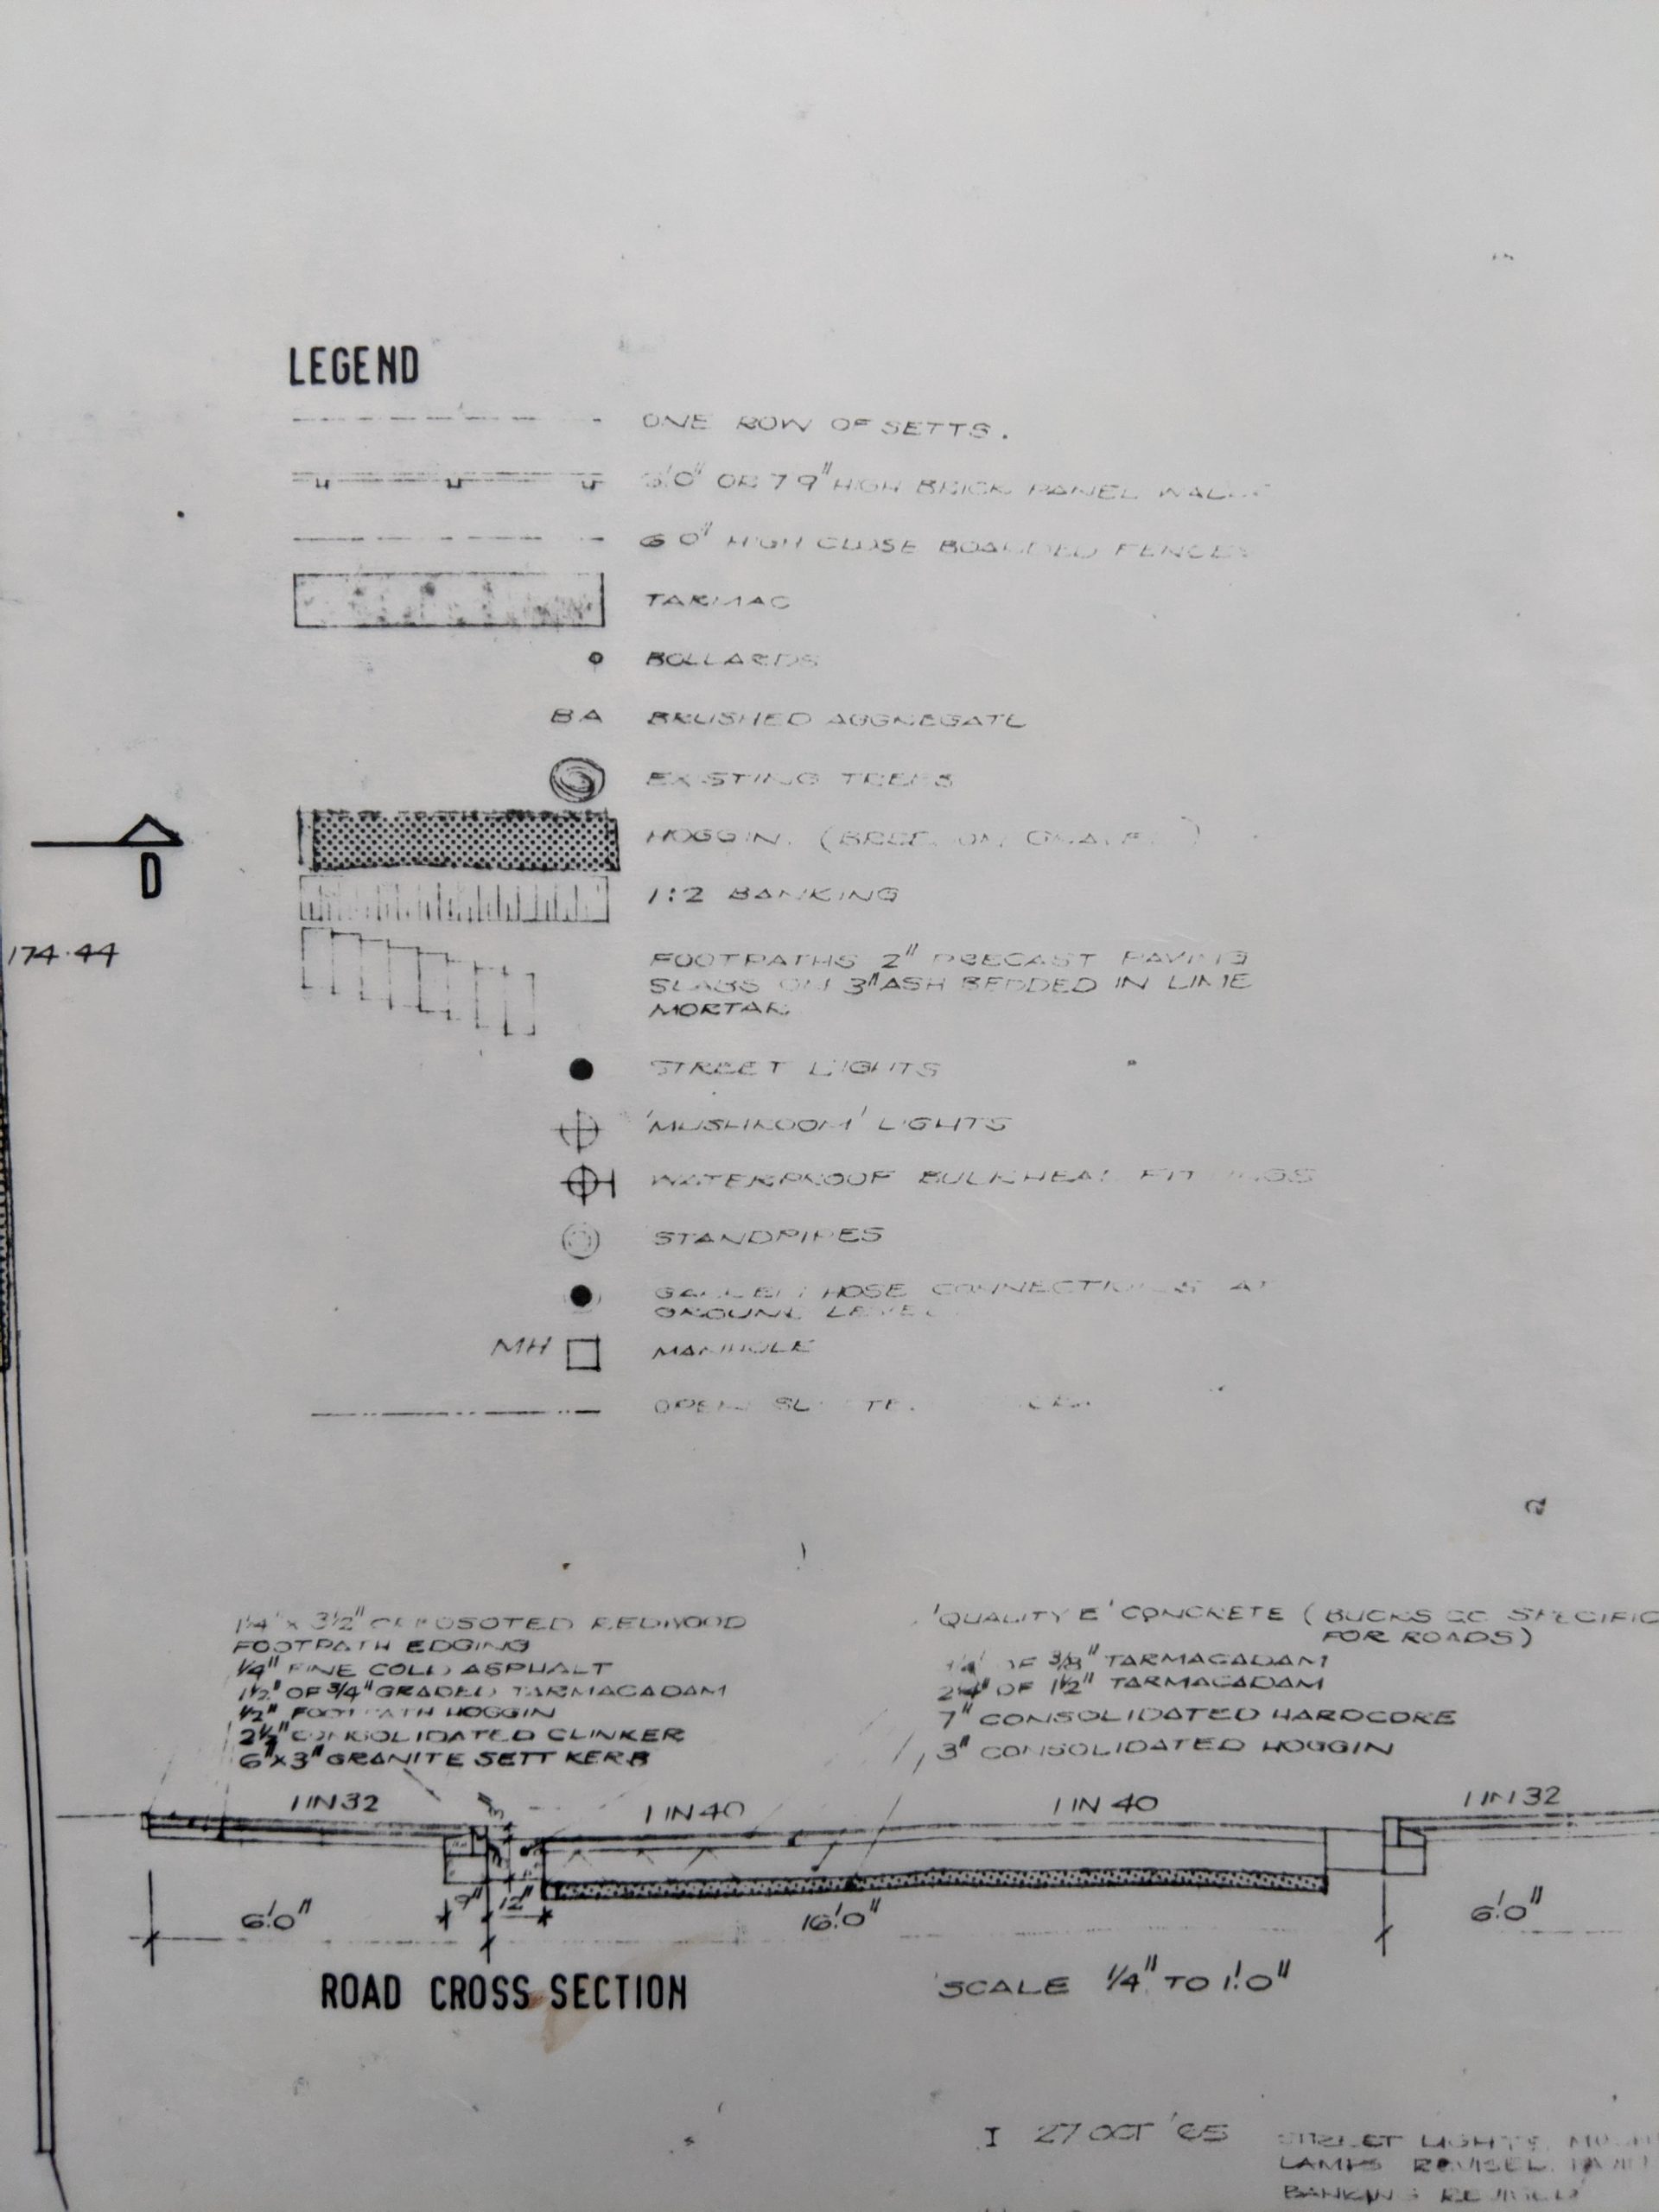 LEGEND
ONE ROW OF SETTS.
OR 7'9" HIGH BRICK PANEL
6'0" HIGH CLOSE BOARDED FENCES
TARMAC
BOLLARDS
BA BRUSHED AGGREGATE
EXISTING TREES
D
HOGGIN
1:2 BANKING
174.44
FOOTPATHS 2" PRECAST PAVING
SLABS ON 3" ASH BEDDED IN LIME
MORTAR
STREET LIGHTS
'MUSHROOM' LIGHTS
WATERPROOF BULKHEAD FITTINGS
STANDPIPES
GARDEN HOSE CONNECTIONS AT
GROUND LEVEL
MH MANHOLE
OPEN
3½" CREOSOTED REDWOOD
FOOTPATH EDGING
¼" FINE COLD ASPHALT
1½" OF ¾" GRADED TARMACADAM
½" FOOTPATH HOGGIN
2½" CONSOLIDATED CLINKER
6"X3" GRANITE SETT KERB
'QUALITY E' CONCRETE (BUCKS CC SPECIFIC
FOR ROADS)
OF ⅜" TARMACADAM
2¼" OF 1½" TARMACADAM
7" CONSOLIDATED HARDCORE
3" CONSOLIDATED HOGGIN
1 IN 32
1 IN 40
1 IN 40
1 IN 32
6'.0"
9"
12"
16'.0"
6'.0"
ROAD CROSS SECTION
SCALE ¼" TO 1'.0"
I 27 OCT '65 STREET LIGHTS,
LAMPS REVISED.
BANKING REVISED